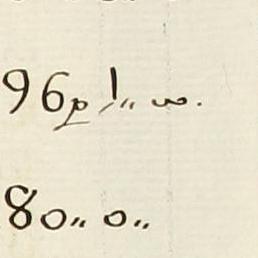 96p 1,, ∞.
80,, 0,,